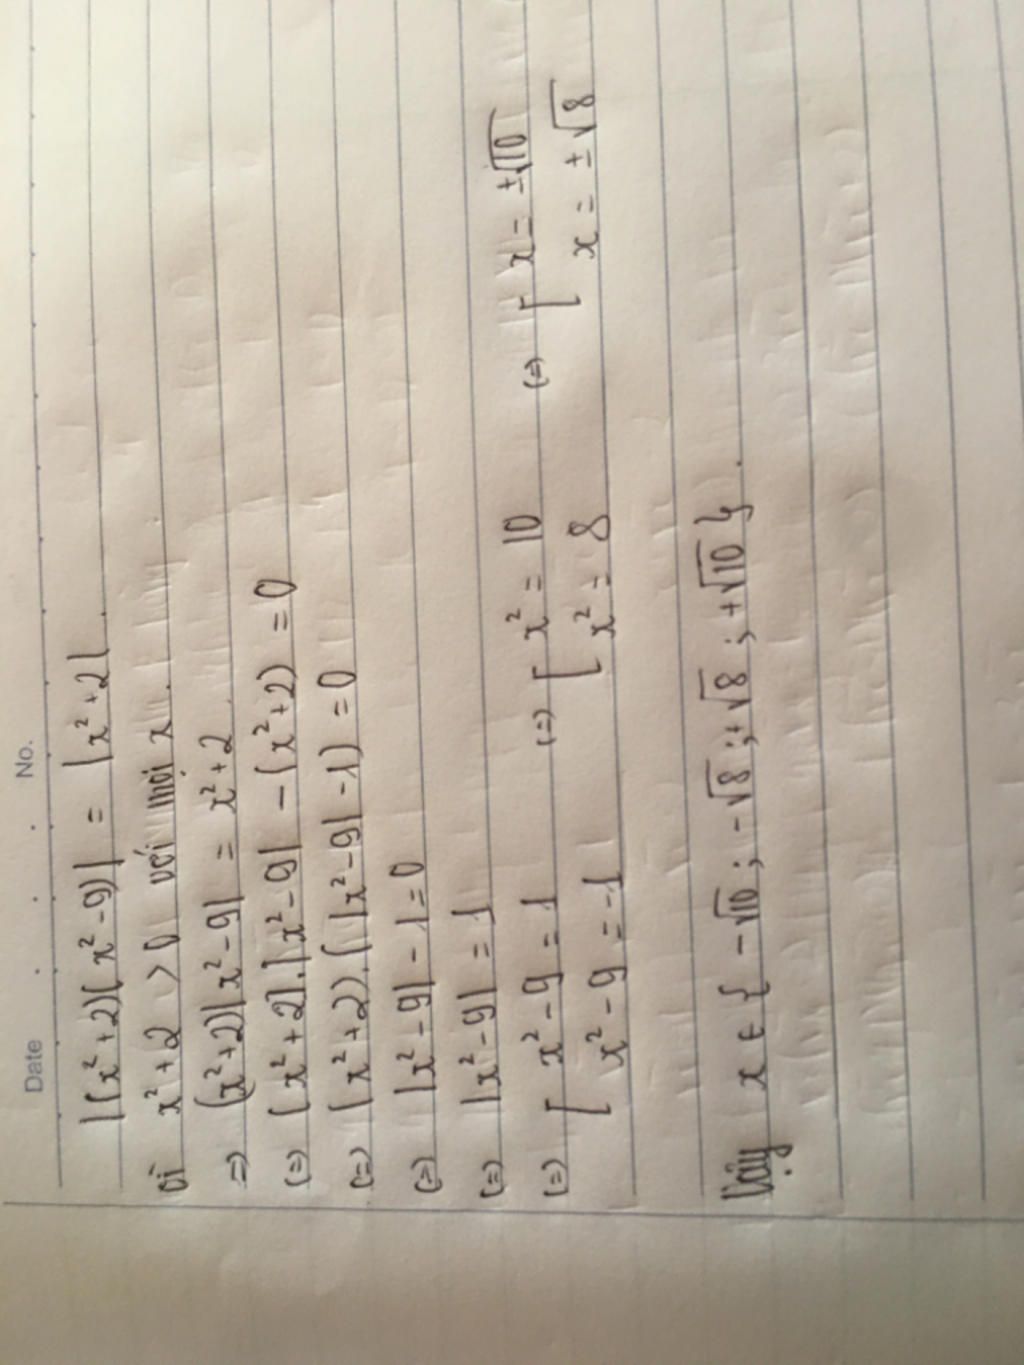 Date No.
|(x²+2)(x²-9)| = |x²+2|.
Vì x²+2 > 0 với mọi x.
=> (x²+2)|x²-9| = x²+2
(=) (x²+2).|x²-9| - (x²+2) = 0
(=) (x²+2).(|x²-9| -1) = 0
(=) |x²-9| - 1 = 0
(=) |x²-9| = 1
(=) [ x²-9 = 1 (=) [ x² = 10 (=) [ x = ±√10
x²-9 = -1 x² = 8 x = ±√8
Vậy x ∈ { -√10 ; -√8 ; +√8 ; +√10 }.